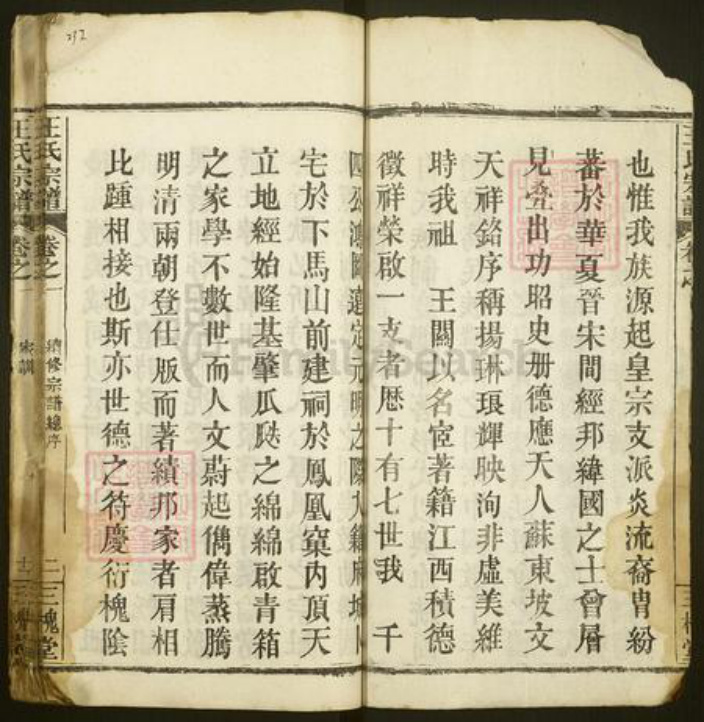 也惟我族源起皇宗支派炎流裔胄紛
蕃於華夏晉宋間經邦緯國之士曾層
見叠出功昭史册德應天人蘇東坡文
天祥銘序稱揚琳琅輝映洵非虛美維
時我祖 王闗以名宦著籍江西積德
徵祥榮啟一支者歷十有七世我 千
四公鴻圖薳定元明之際入籍麻城卜
宅於下馬山前建祠於鳳凰窠內頂天
立地經始隆基肇瓜瓞之綿綿啟青箱
之家學不數世而人文蔚起儁偉蒸騰
明清兩朝登仕版而著績邦家者肩相
比踵相接也斯亦世德之符慶衍槐陰
王氏宗譜 卷之一 續修宗譜總序 二 三槐堂
王氏宗譜 卷之一 家訓 三槐堂
FamilySearch
292